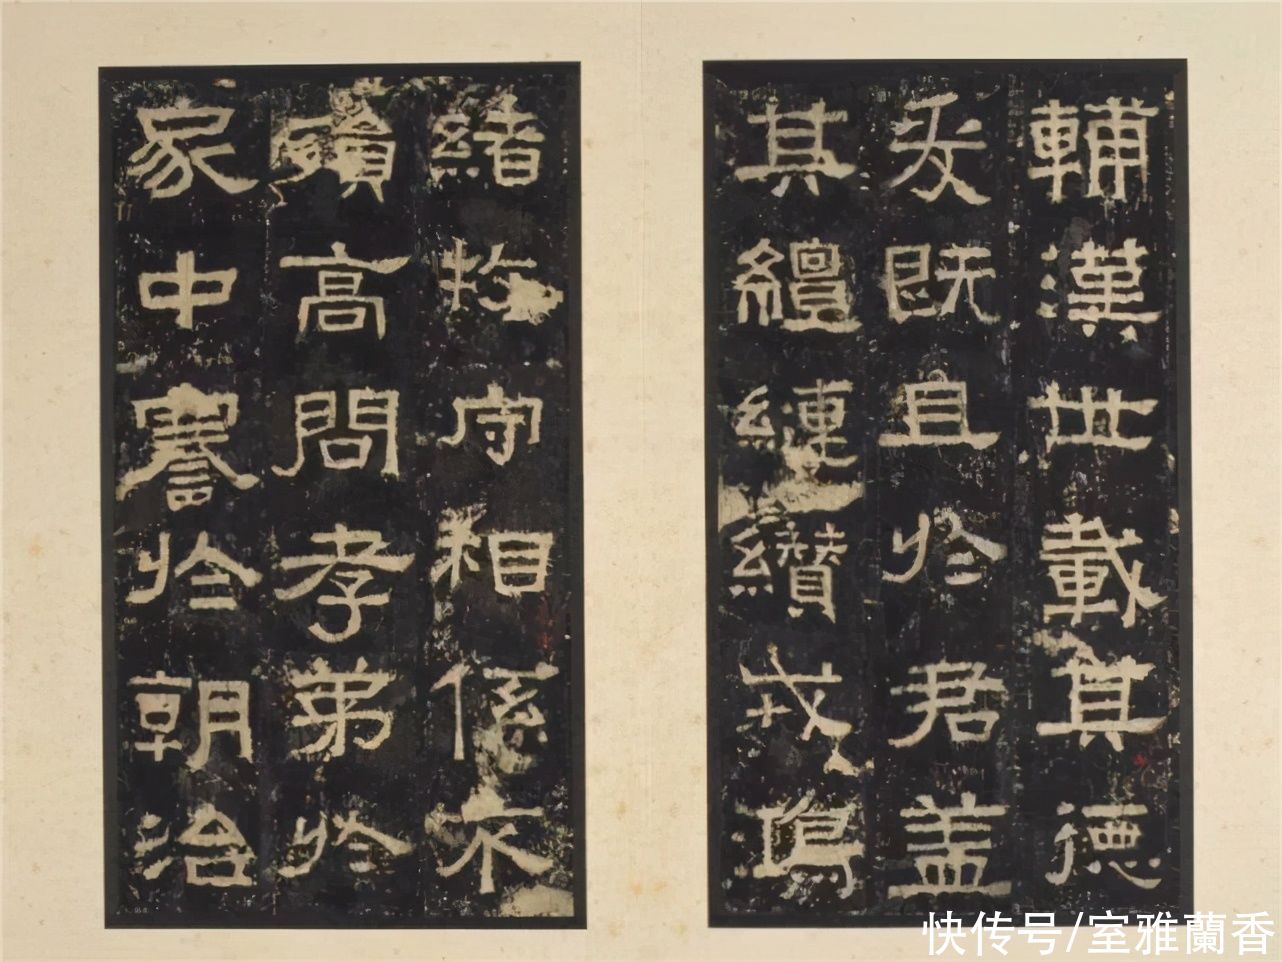 輔漢世載其德
爰既且於君盖
其繵縺纘戎鴻
緒牧守相係不
殞高問孝弟於
家中謇於朝治
快传号/室雅蘭香